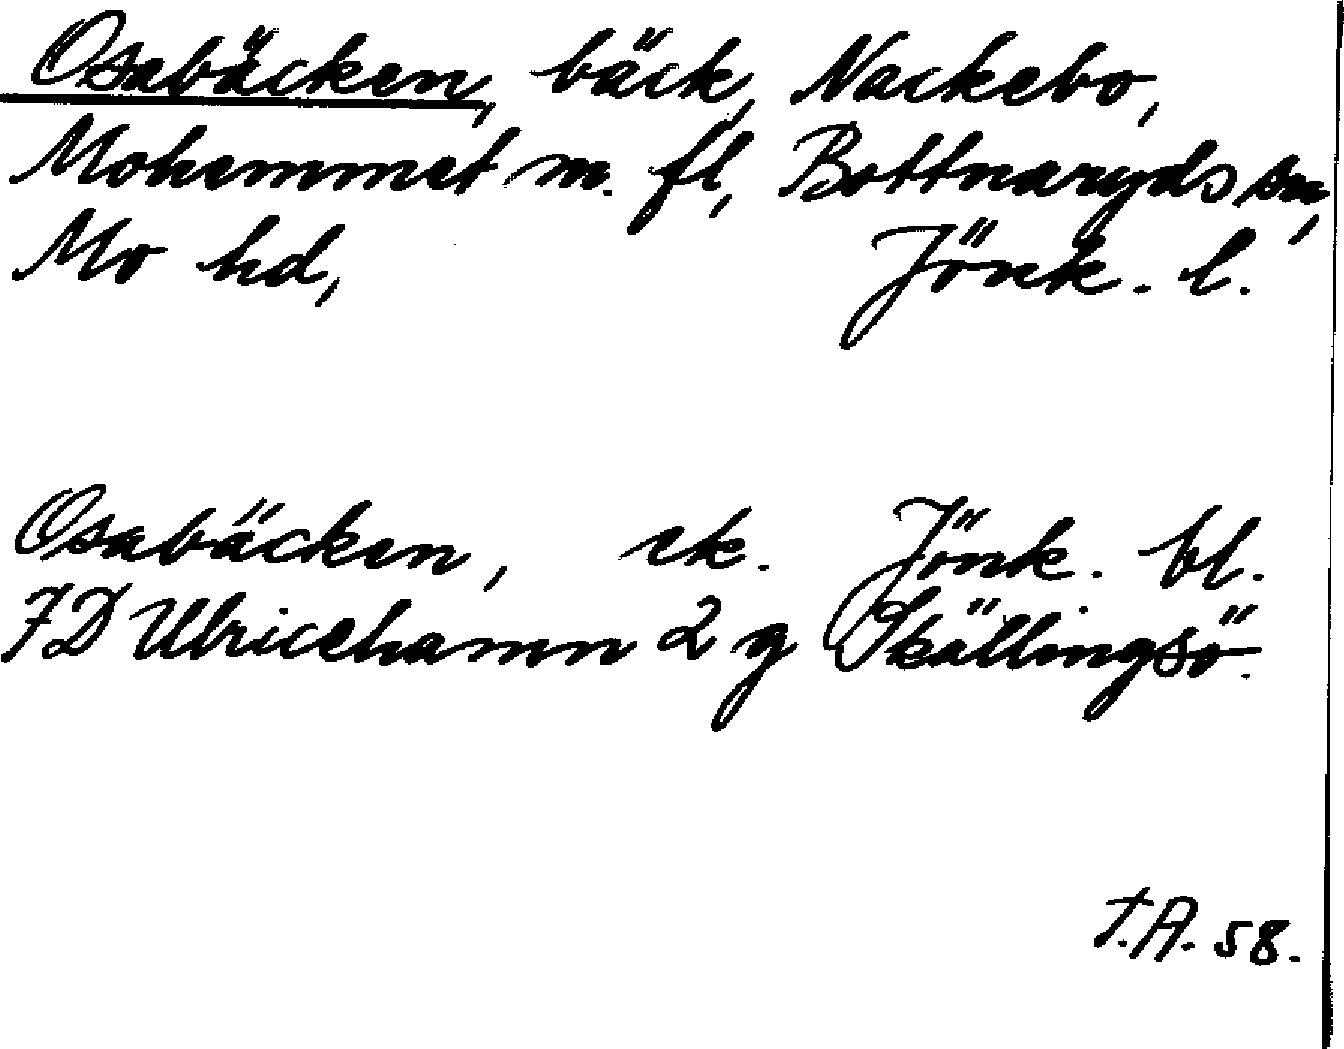 Osabäcken, bäck, Nackebo,
Mohemmet m. fl, Bottnaryds sn,
Mo hd, Jönk. l.
Osabäcken, ek. Jönk. bl.
FD Ulricehamn 2 g Skällingsö.
T.A. 58.